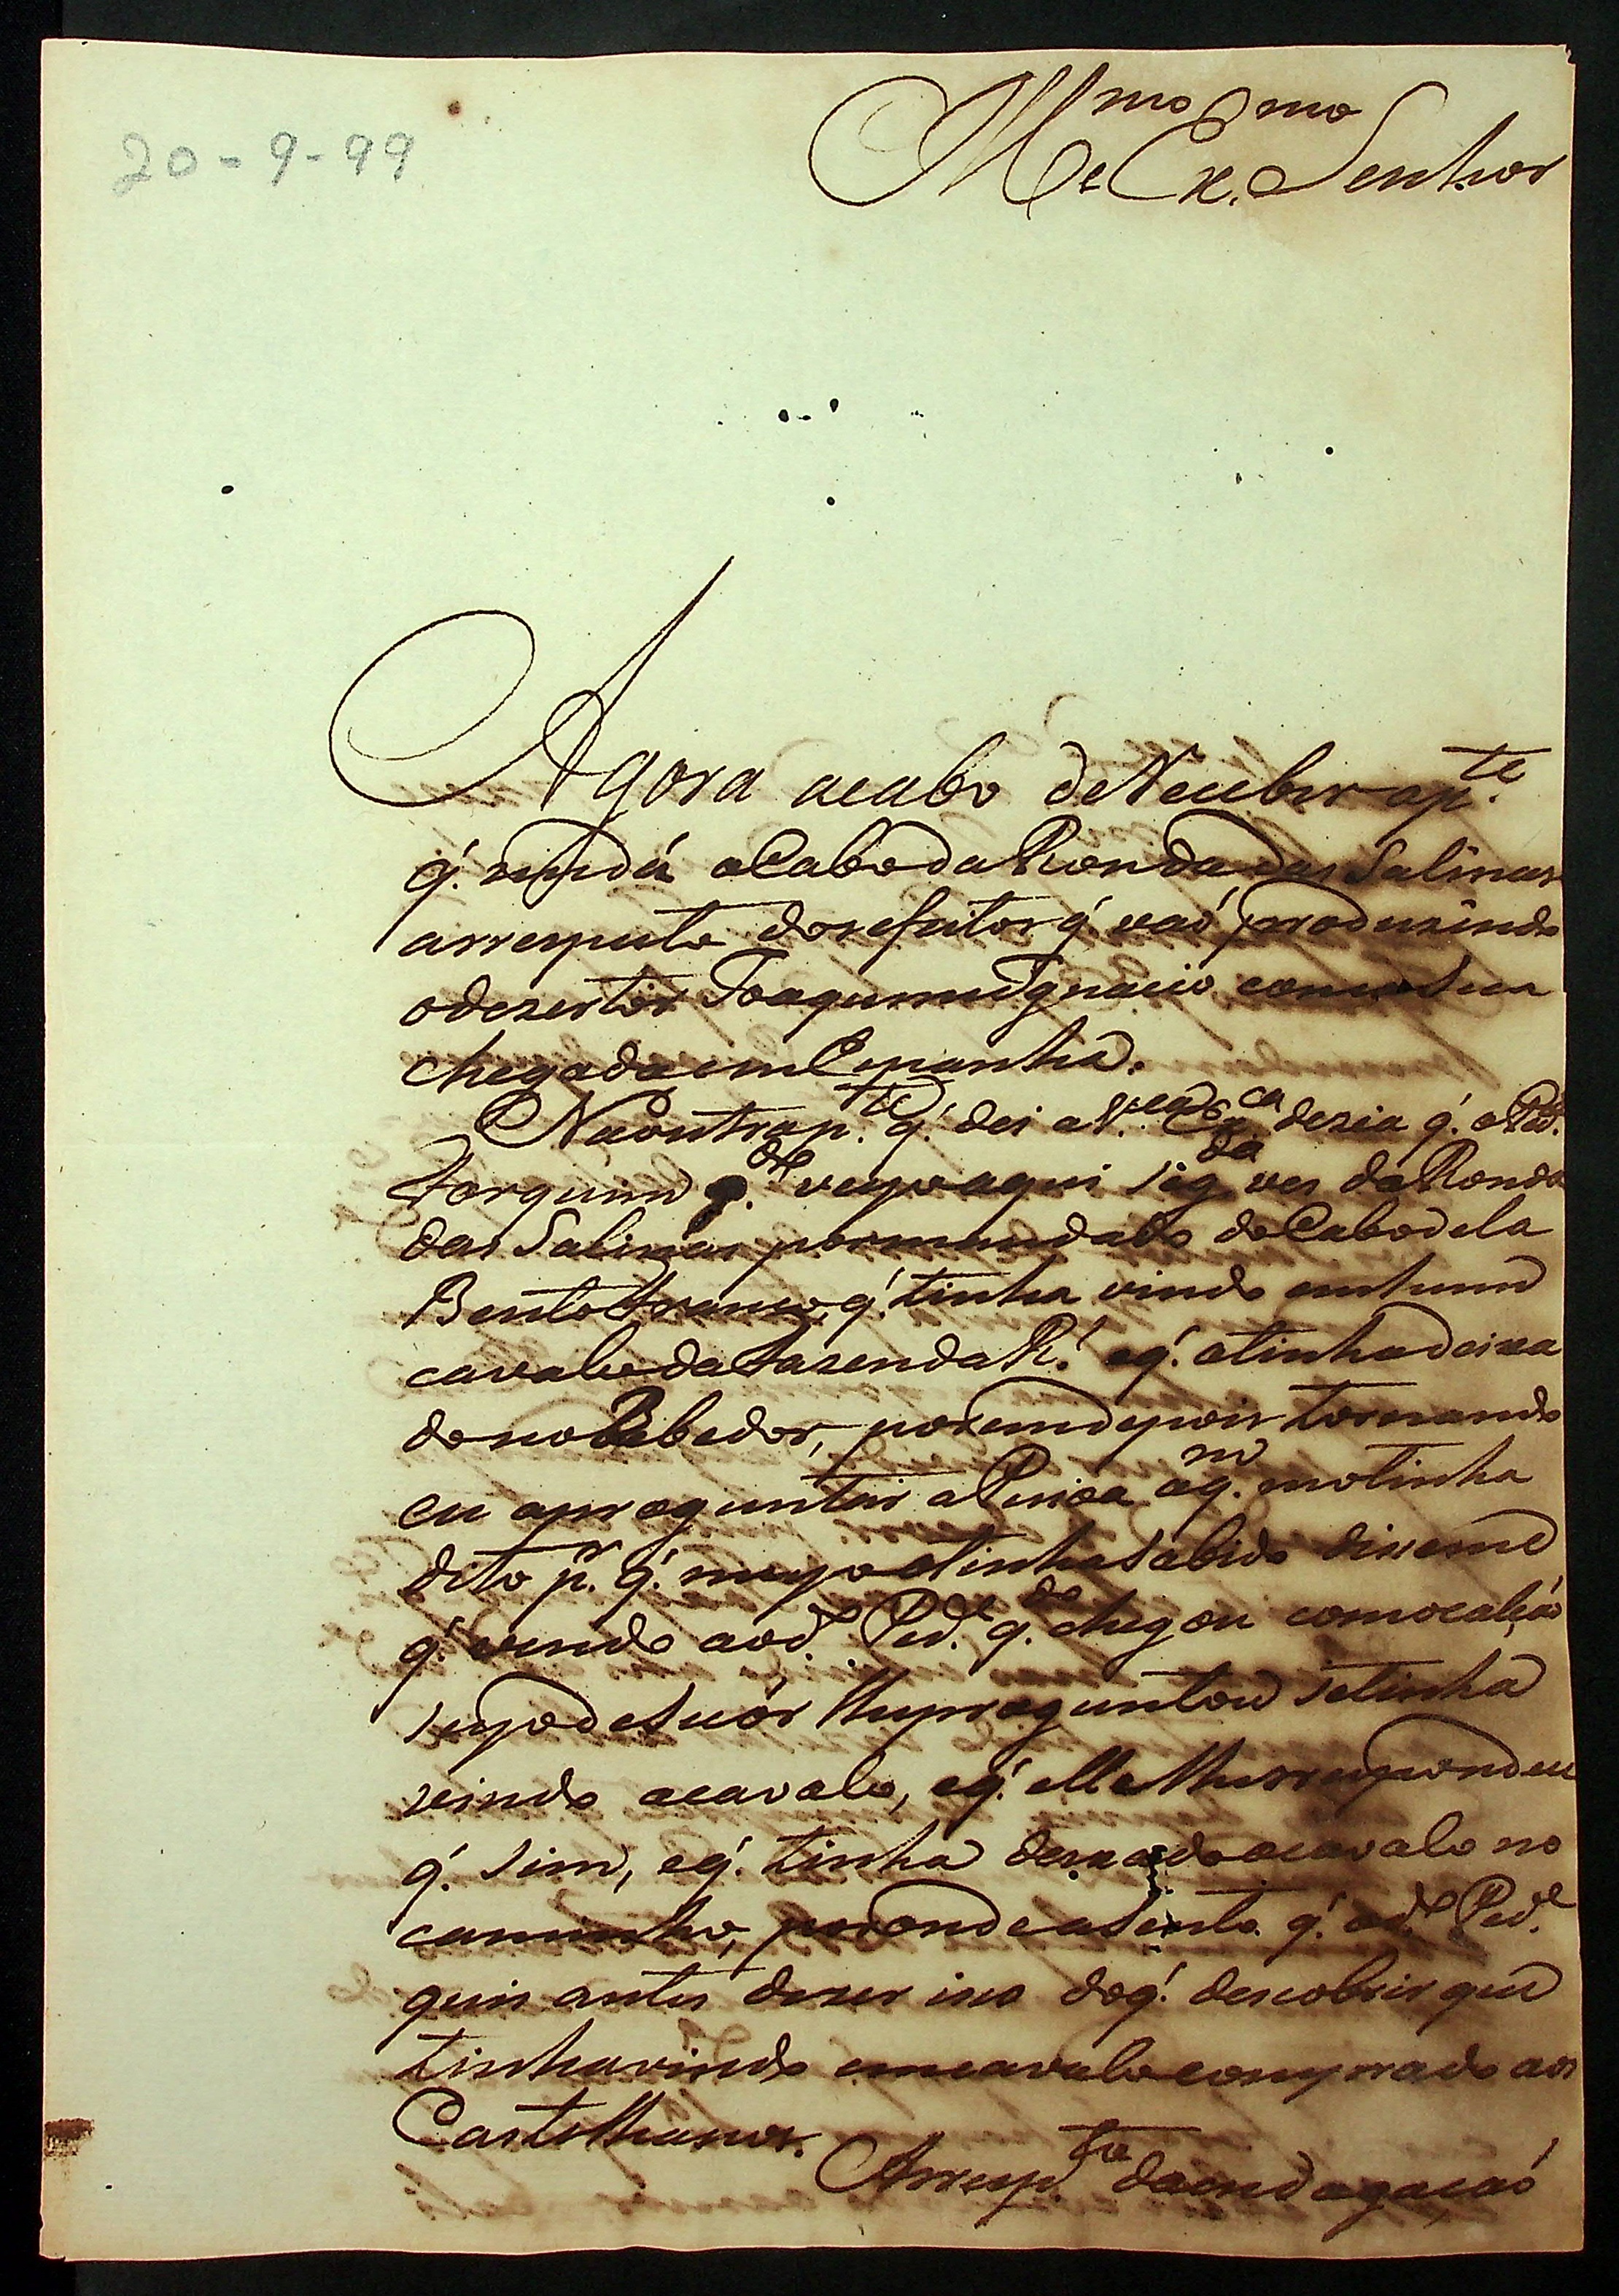 20-9-99
Ill.mo e Ex.mo Senhor
Agora acabo de Receber a p.te
q'. me dá o Cabo da Ronda das Salinas
arrespeito dos efeitos q' vaó produzindo
o dezertor Joaquim Ignacio com a sua
chegada em Espanha.
Na outra p.te q' dei a V. Ex.ca dezia q'. o Ped.e
Jorquim q.do veyo aqui seg.da ves da Ronda
das Salinas por mandado do Cabo dela
Bento Franco, q'. tinha vindo em hum
cavalo da Fazenda R.' e q'. o tinha deixa
do no Bebedor, porem depois tornando
eu apreguntar a Pessoa aq.m mo tinha
dito p.r q'. meyo o tinha sabido disseme
q'. vendo ao d.o Ped.e q.do chegou com o calçáo
sujo de suór lhe preguntou se tinha
vindo acavalo, e q'. elle lhe respondeu
q'. sim, e q'. tinha deixado o cavalo no
caminho, por onde asento q'. o d.o Ped.e
quis antes dizer isso do q'. descobrir que
tinha vindo em cavalo comprado aos
Castelhanos.
Arresp.to da endagaçaó